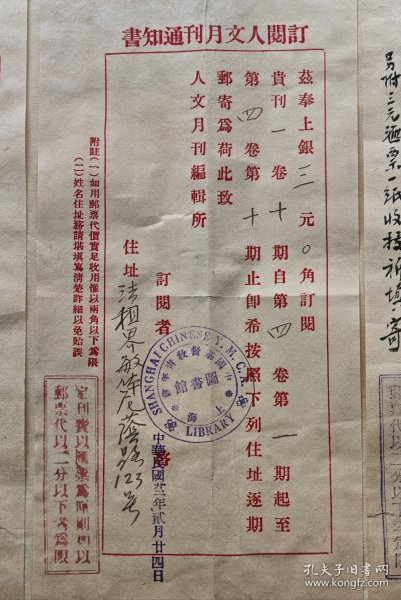 訂閱人文月刊通知書
茲奉上銀三元〇角訂閱
貴刊一卷十期自第四卷第一期起至
第四卷第十期止即希按照下列住址逐期
郵寄爲荷此致
人文月刊編輯所
訂閱者
啓
SHANGHAI CHINESE Y.M.C.A.
LIBRARY
圖書館
上海
住址 法租界敏体尼蔭路123号
中華民國廿二年貳月廿四日
附註(一)如用郵票代價實足收用惟以兩角以下爲限
(二)姓名住址務請填寫清楚詳細以免貽誤
定刊費以匯票爲限則以
郵票代以二分以下者爲限
另附三元匯票一紙收後祈填寄
孔夫子旧书网
www.kongfz.com